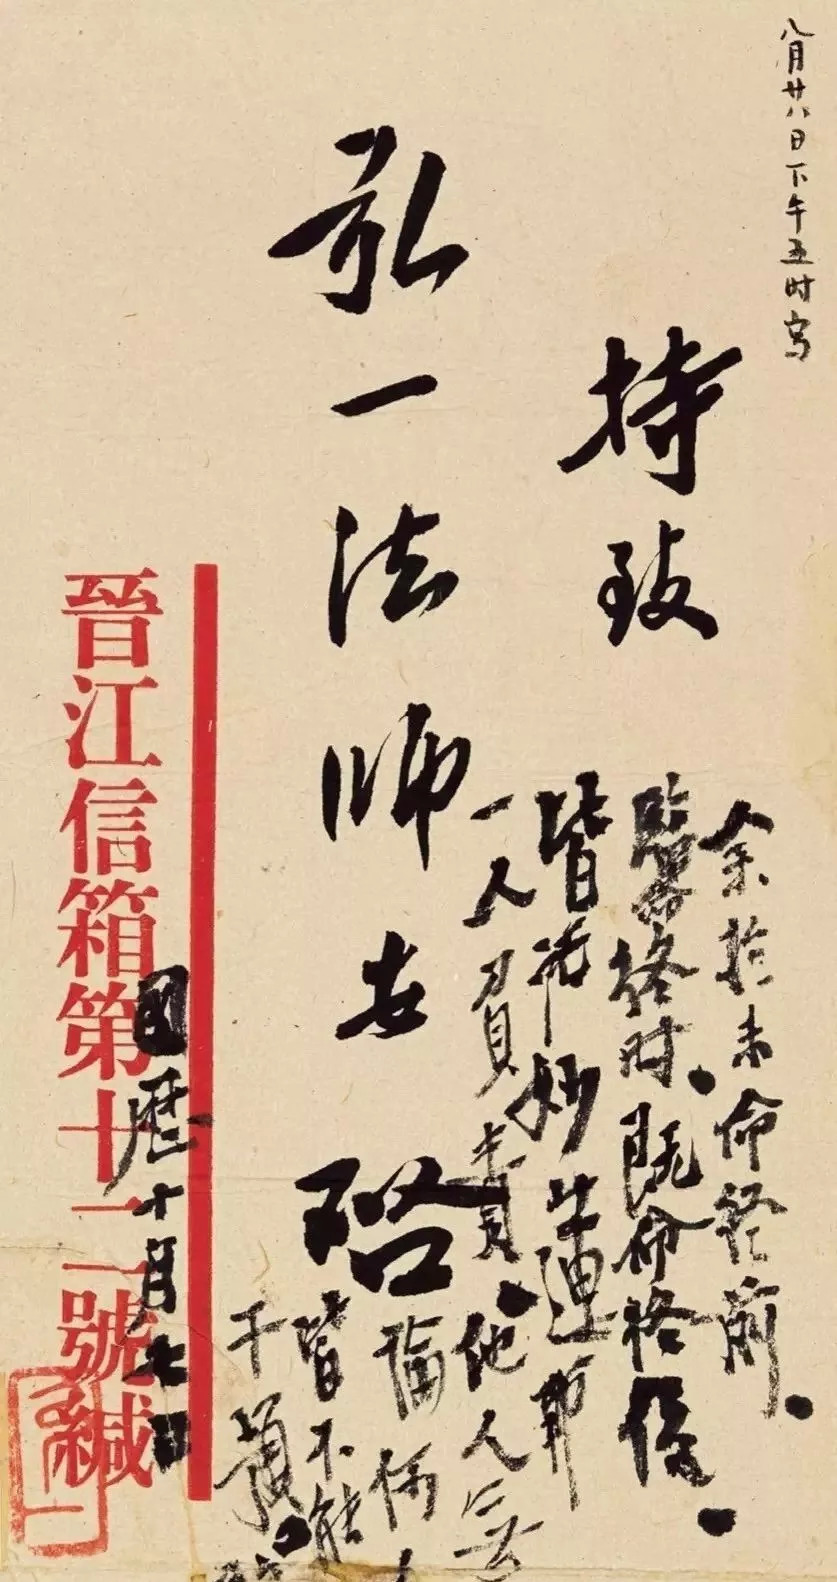 八月廿八日下午五时写
持致
弘一法师安启
余於未命終前。
臨命終时。既命終後。
皆托妙莲師
一人負責。他人無
論何人
皆不能
干預。
國曆十月七日
晉江信箱第十二號緘